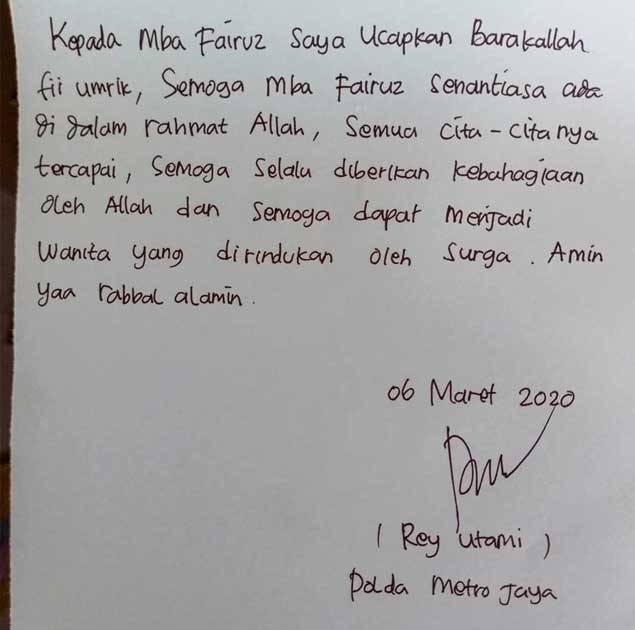 Kepada Mba Fairuz Saya Ucapkan Barakallah
fii umrik, Semoga Mba Fairuz Senantiasa ada
di dalam rahmat Allah, Semua Cita-Citanya
tercapai, Semoga Selalu diberikan kebahagiaan
Oleh Allah dan Semoga dapat Menjadi
Wanita yang dirindukan oleh Surga. Amin
yaa rabbal alamin.
06 Maret 2020
(Rey Utami)
Polda Metro Jaya